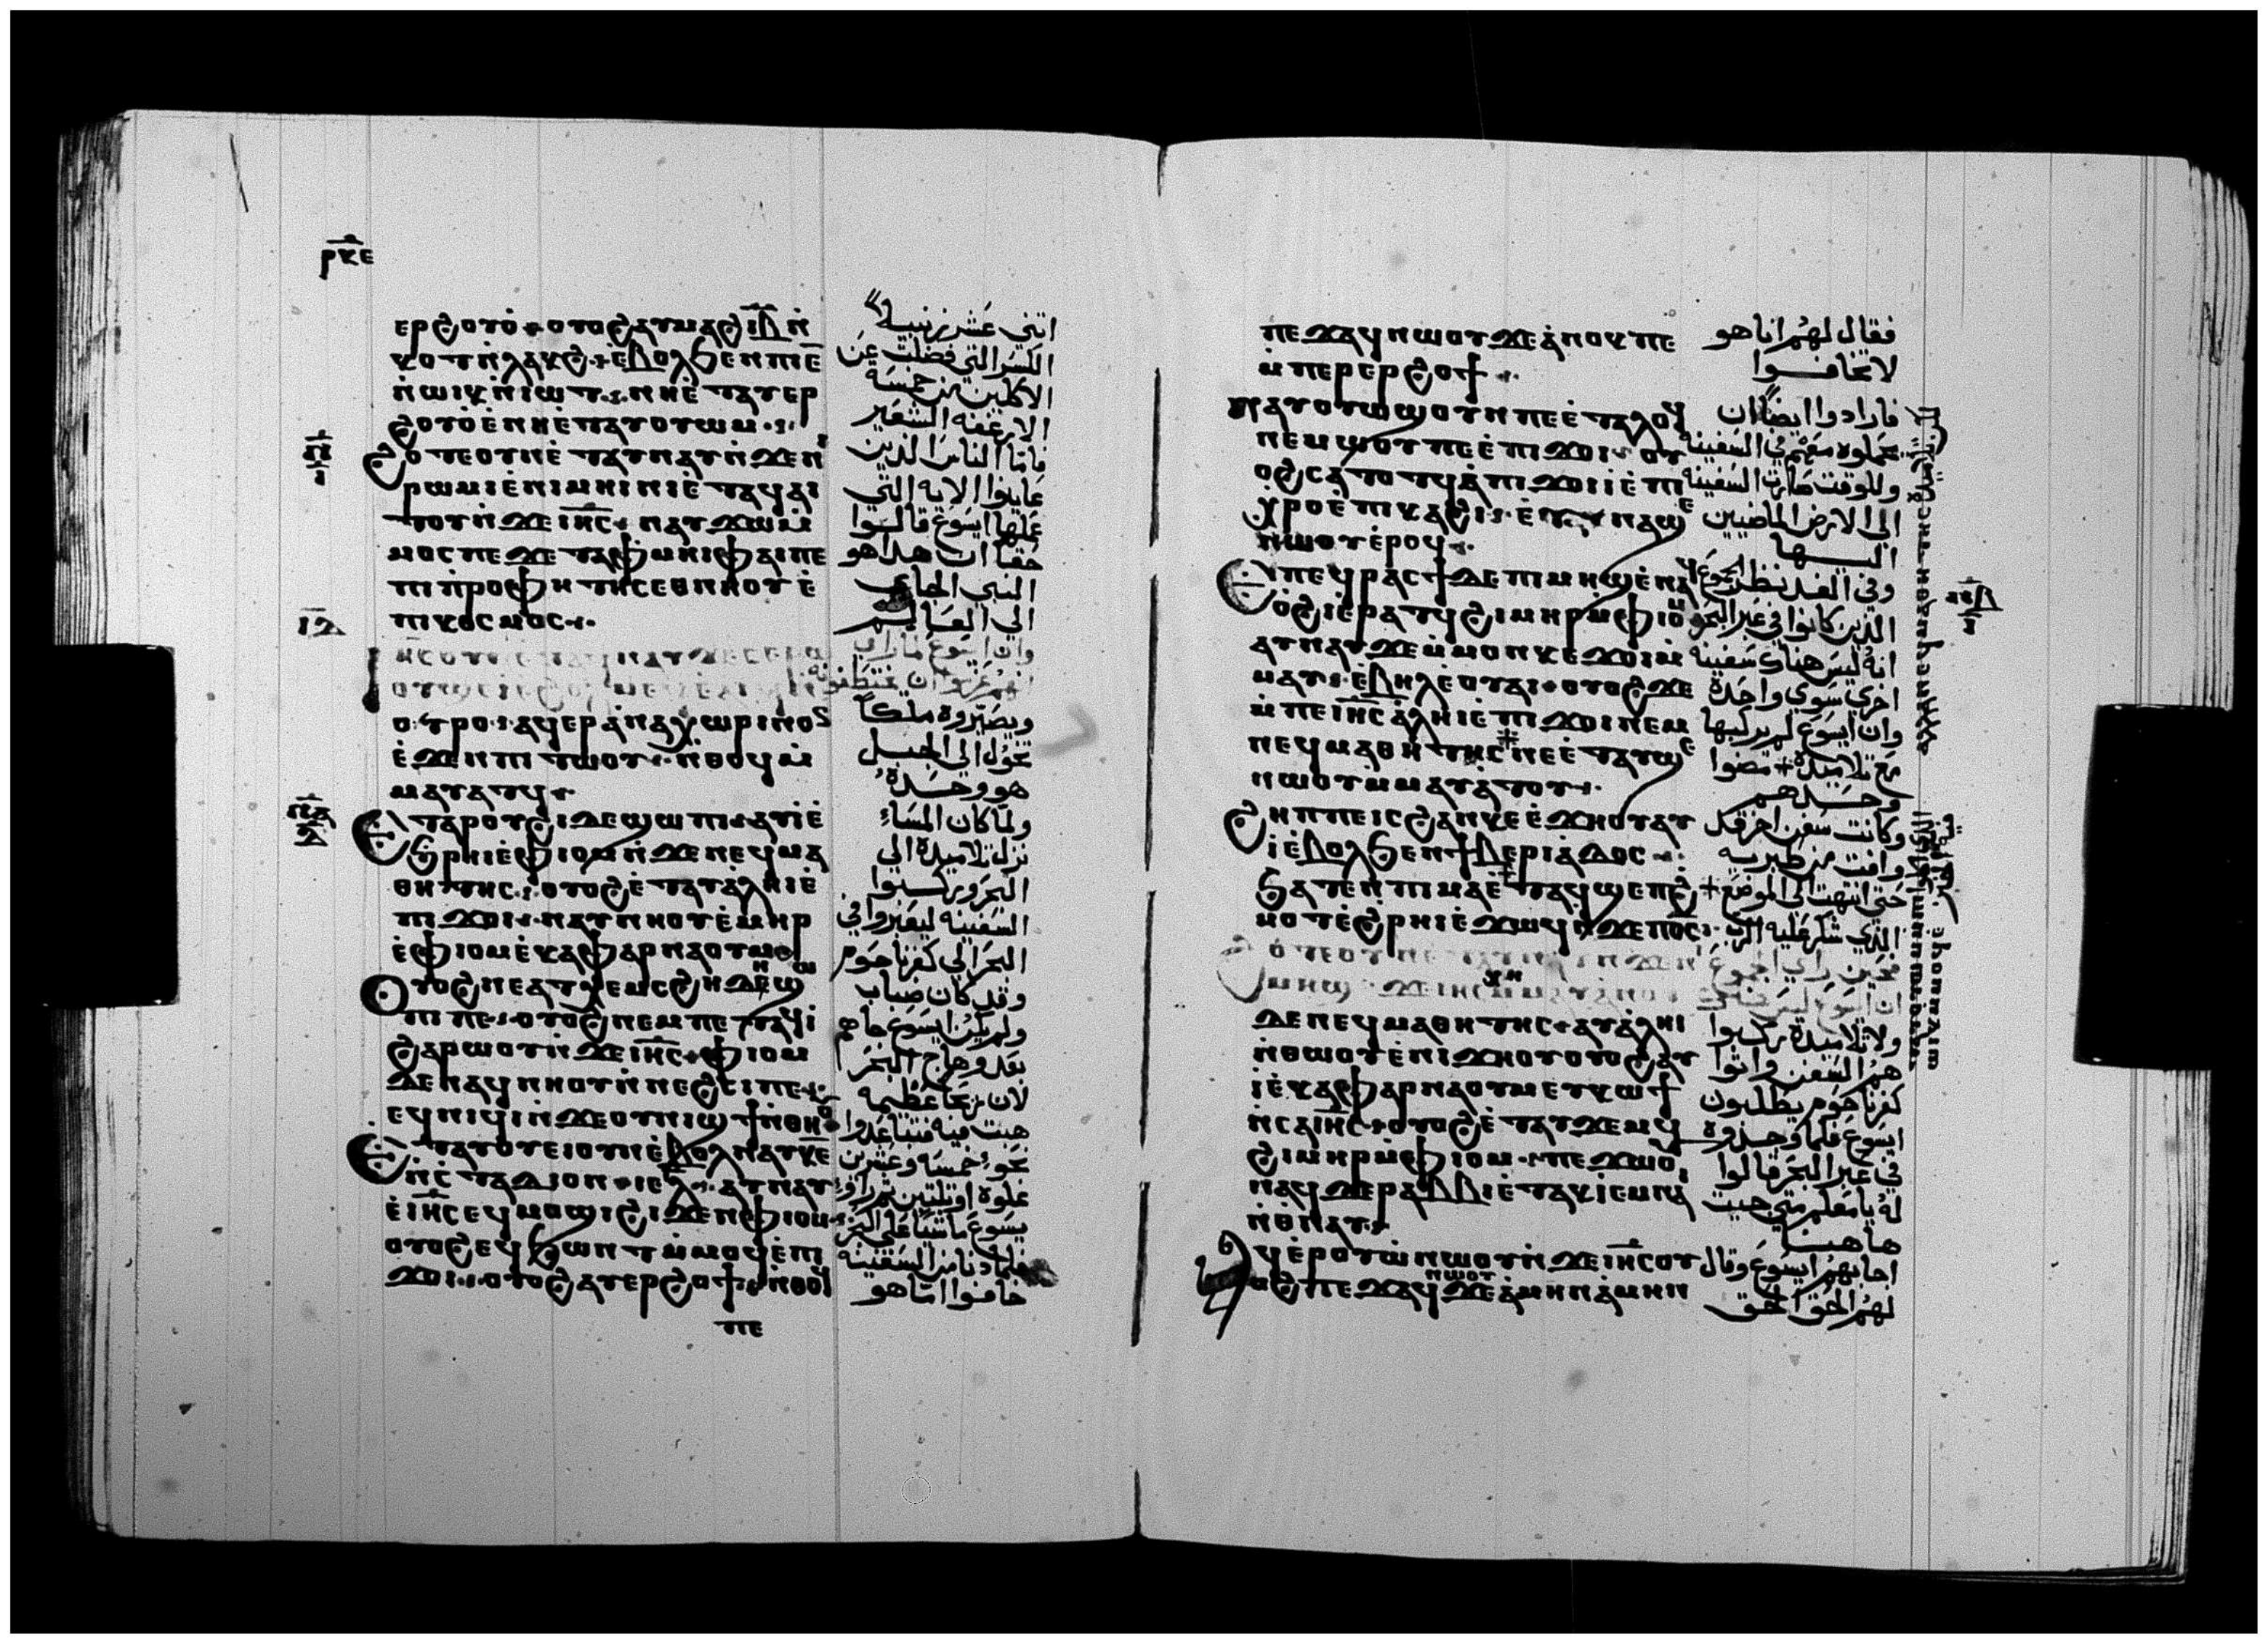 ⲣⲕⲉ
ⲉⲣϩⲟⲩⲟ̇ ⲟⲩⲟϩ ⲁⲩⲙⲁϩ ⲓ̅ⲃ̅ ⲛ̇
ⲕⲟⲧ ⲛ̇ⲗⲁⲕϩ ⲉ̇ⲃⲟⲗϧⲉⲛ ⲡⲓⲉ̅
ⲛ̇ⲱⲓⲕ ⲛ̇ⲓⲱⲧ ⲛⲏⲉ̇ⲧⲁⲩⲉⲣ
ϩⲟⲩⲟ̇ ⲉ̇ⲛⲏⲉ̇ⲧⲁⲩⲟⲩⲱⲙ
ϩⲟⲧⲉ ⲟⲩⲛ ⲉ̇ⲧⲁⲩⲛⲁⲩ ⲛ̇ϫⲉⲛⲓ
ⲣⲱⲙⲓ ⲉ̇ⲛⲓⲙⲏⲓⲛⲓ ⲉⲧⲁϥⲁⲓ
ⲧⲟⲩ ⲛ̇ϫⲉ ⲓⲏ̅ⲥ̅ ⲛⲁⲩϫⲱ ⲙ̇
ⲙⲟⲥ ⲡⲉ ϫⲉ ⲧⲁⲫⲙⲏⲓ ⲫⲁⲓ ⲡⲉ
ⲡⲓⲡ̇ⲣⲟⲫⲏⲧⲏⲥ ⲉⲑⲛⲏⲟⲩ ⲉ̇
ⲡⲓⲕⲟⲥⲙⲟⲥ
ⲟⲩⲣⲟ ⲁϥⲉⲣⲁ̇ⲛⲁⲭⲱⲣⲓⲛ ⲟⲥ
ⲉ̇ϫⲉⲛ ⲡⲓⲧⲱⲟⲩ ⲛ̇ⲑⲟϥ ⲙ̇
ⲙⲁⲩⲁⲧϥ
ⲉⲧⲁ ⲣⲟⲩϩⲓ ⲇⲉ ϣⲱⲡⲓ ⲁⲩⲓ̇ ⲉ̇
ϧⲣⲏⲓ ⲉ̇ⲫⲓⲟⲙ ⲛ̇ϫⲉ ⲛⲉϥⲙⲁ
ⲑⲏⲧⲏⲥ ⲟⲩⲟϩ ⲉ̇ⲧⲁⲩⲁ̇ⲗⲏⲓ ⲉ̇
ⲡⲓϫⲟⲓ ⲛⲁⲩⲛⲏⲟⲩ ⲉ̇ⲙⲏⲣ
ⲉ̇ⲫⲓⲟⲙ ⲉ̇ⲕⲁⲫⲁⲣⲛⲁⲟⲩⲙ
ⲟⲩⲟϩ ⲛⲉ ⲁⲩⲭⲉⲙⲥ ϩⲏⲇⲏ ϣⲱ
ⲡⲓ ⲡⲉ ⲟⲩⲟϩ ⲛⲉⲙⲡⲉⲧⲁϥⲓ̇
ϩⲁⲣⲱⲟⲩ ⲛ̇ϫⲉ ⲓⲏ̅ⲥ̅ ⲫⲓⲟⲙ
ⲇⲉ ⲛⲁϥⲛⲏⲟⲩ ⲛ̇ⲛⲉϩⲥⲓ ⲡⲉ
ⲉϥⲛⲓϥⲓ ⲛ̇ϫⲉ ⲟⲩⲛⲓϣϯ ⲛ̇ⲑⲏⲟⲩ
ⲉⲧⲁⲩⲟⲩⲉⲓ ⲟⲩⲛ ⲉ̇ⲃⲟⲗ ⲛⲁⲩ ⲕ̅ⲉ̅
ⲛ̇ⲥ̇ⲧⲁⲇⲓⲟⲛ ⲓⲉ ⲗ̅ ⲁⲩⲛⲁⲩ
ⲉ̇ⲓⲏ̅ⲥ̅ ⲉϥⲙⲟϣⲓ ϩⲓϫⲉⲛ ⲫⲓⲟⲙ
ⲟⲩⲟϩ ⲉϥϧⲱⲛⲧ ⲙ̇ⲙⲟϥ ⲉ̇ⲡⲓ
ϫⲟⲓ ⲟⲩⲟϩ ⲁⲩⲉⲣϩⲟϯ ⲛ̇ⲑⲟϥ
ⲡⲉ
اثني عشر زنبيلا
الكسر التي فضلت عن
الاكلين من خمسة
الارغفه الشعير
فاما الناس الذين
عاينوا الايه التي
عملها ايسوع قالوا
حقا ان هذا هو
النبي الجاي
الي العالم
وان ايسوع
ويصيروه ملكا
تحول الي الجبل
هو وحده
ولما كان المساء
نزل تلاميذه الي
البحر وركبوا
السفينه ليعبروا في
البحر الي كفرناحوم
وقد كان ضباب
ولم يكن ايسوع جاهم
بعد وهاج البحر
لان ريحا عظيمه
هبت فيه
نحو خمسه وعشرين
غلوه او ثلثين
يسوع ماشيا علي البحر
السفينه
خافوا اما هو
ⲡⲉϫⲁϥ ⲛⲱⲟⲩ ϫⲉ ⲁ̇ⲛⲟⲕ ⲡⲉ
ⲙ̇ⲡⲉⲣⲉⲣϩⲟϯ
ⲛⲁⲩⲟⲩⲱϣ ⲟⲩⲛ ⲡⲉ ⲉ̇ⲧⲁⲗⲟϥ
ⲛⲉⲙⲱⲟⲩ ⲡⲉ ⲉ̇ⲡⲓϫⲟⲓ ⲟⲩ
ⲟϩ ⲥⲁⲧⲟⲧϥ ⲁ̇ⲡⲓϫⲟⲓ ⲓ̇ ⲉ̇ⲡⲓ
ⲭⲣⲟ ⲉ̇ⲡⲓⲕⲁϩⲓ ⲉ̇ ⲛⲁϣⲉ
ⲛⲱⲟⲩ ⲉ̇ⲣⲟϥ
ⲉ̇ⲡⲉϥⲣⲁⲥϯ ⲇⲉ ⲡⲓⲙⲏϣ ⲉ̇ⲛⲁϥ
ⲟ̇ϩⲓ ⲉ̇ⲣⲁⲧϥ ϩⲓⲙⲏⲣ ⲙ̇ⲫⲓⲟⲙ
ⲁⲩⲛⲁⲩ ϫⲉ ⲙ̇ⲙⲟⲛ ⲕⲉϫⲟⲓ ⲙ̇
ⲙⲁⲩ ⲉ̇ⲃⲏⲗ ⲉ̇ⲟⲩⲁⲓ ⲟⲩⲟϩ ϫⲉ
ⲙ̇ⲡⲉ ⲓⲏ̅ⲥ̅ ⲁ̇ⲗⲏⲓ ⲉ̇ⲡⲓϫⲟⲓ ⲛⲉⲙ
ⲛⲉϥⲙⲁⲑⲏⲧⲏⲥ ⲛⲉ ⲉ̇ⲧⲁⲩϣⲉ
ⲛⲱⲟⲩ ⲙ̇ⲙⲁⲩⲁⲧⲟⲩ
ϩⲏⲡⲡⲉ ⲓⲥ ϩⲁⲛⲕⲉⲉ̇ϫⲏⲟⲩ ⲁⲩ
ⲓ̇ ⲉ̇ⲃⲟⲗϧⲉⲛ ϯⲃⲉⲣⲓⲁⲇⲟⲥ
ϧⲁⲧⲉⲛ ⲡⲓⲙⲁ ⲉ̇ⲧⲁϥϣⲉⲡϩ̇
ⲙⲟⲧ ⲉ̇ϩⲣⲏⲓ ⲉ̇ϫⲱϥ ⲛ̇ϫⲉ ⲡⲟ̅ⲥ̅
ⲇⲉ ⲛⲉϥⲙⲁⲑⲏⲧⲏⲥ ⲁⲩⲁ̇ⲗⲏⲓ
ⲛ̇ⲑⲱⲟⲩ ⲉ̇ⲛⲓⲉϫⲏⲟⲩ ⲟⲩⲟϩ ⲁⲩ
ⲓ̇ ⲉ̇ⲕⲁⲫⲁⲣⲛⲁⲟⲩⲙ ⲉⲩⲕⲱϯ
ⲛ̇ⲥⲁ ⲓⲏ̅ⲥ̅ ⲟⲩⲟϩ ⲉ̇ⲧⲁⲩϫⲉⲙϥ
ϩⲓⲙⲏⲣ ⲙ̇ⲫⲓⲟⲙ ⲡⲉϫⲱⲟⲩ
ⲛⲁϥ ϫⲉ ⲣⲁⲃⲃⲓ ⲉ̇ⲧⲁⲕⲓ̇ ⲉⲙⲛⲁ
ⲛ̇ⲑⲛⲁⲩ
ⲁϥⲉ̇ⲣⲟⲩⲱ̇ ⲛⲱⲟⲩ ⲛ̇ϫⲉ ⲓⲏ̅ⲥ̅ ⲟⲩ
ⲟϩ ⲡⲉϫⲁϥ ⲛⲱⲟⲩ ϫⲉ ⲁ̇ⲙⲏⲛ ⲁ̇ⲙⲏⲛ
فقال لهم انا هو
لا تخافوا
فارادوا ايضا ان
يحملوه معهم في السفينه
وللوقت صارت السفينه
الي الارض الماضيين
اليها
وفي الغد نظر الجموع
الذين كانوا في عبر البحر
انه ليس هناك سفينه
اخري سوي واحده
وان ايسوع لم يركبها
مع تلاميذه مضوا
وحدهم
وكانت سفن اخر قد
وافت من طبريه
حتي انتهت الي الموضع
الذي شكر عليه الرب
فحين راي الجموع
ان ايسوع ليس
ولا تلاميذه ركبوا
هم السفن واتوا
كفرناحوم يطلبون
ايسوع فلما وجدوه
في عبر البحر قالوا
له يا معلم متي جيت
هاهنا
اجابهم ايسوع وقال
لهم الحق الحق